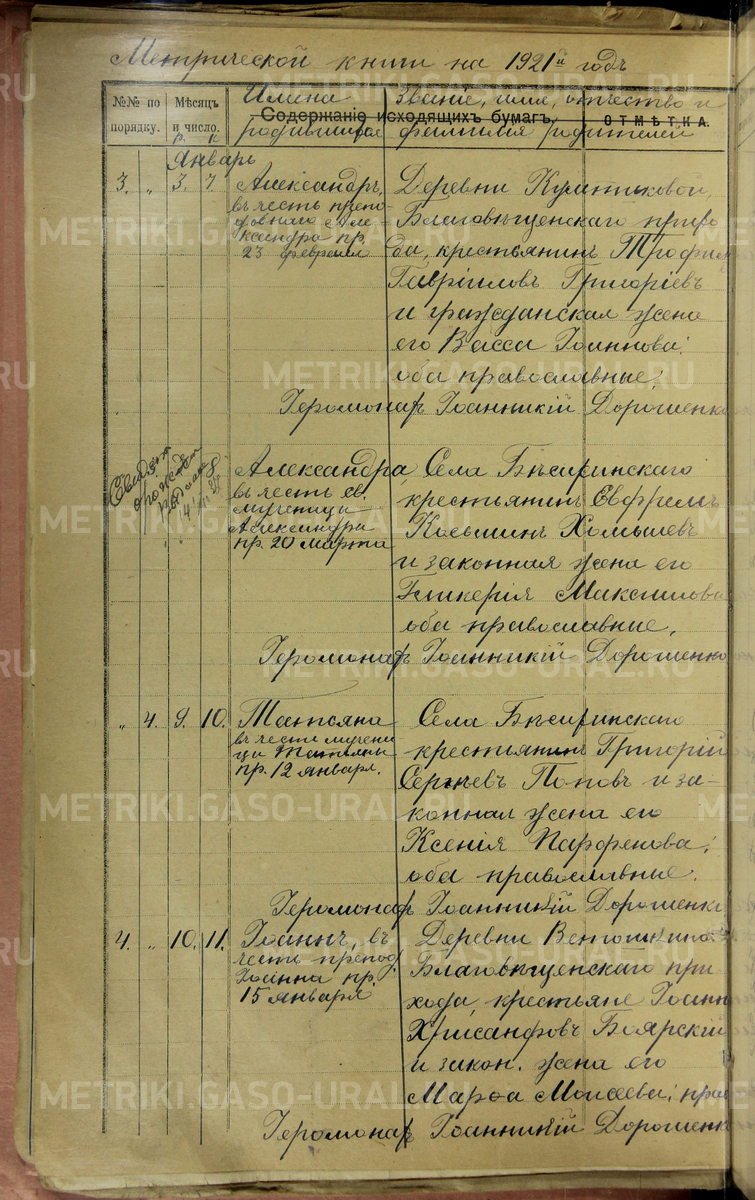 Метрической книги на 1921й годъ
№№ по порядку.
Мѣсяцъ и число.
Имена родившихся
Содержаніе исходящихъ бумагъ.
Званіе, имя, отчество и фамилія родителей
ОТМѢТКА.
р. к.
Январь
3. " 3. 7.
Александръ,
въ честь препо-
добнаго Але-
ксандра пр.
23 февраля
Деревни
Благовѣщенскаго прихо
да, крестьянинъ Трофим
Гавріиловъ Григоріевъ
и гражданская жена
его Васса Іоаннова:
оба православные;
Іеромонахъ Іоанникій Дорошенко
Александра,
въ честь св.
мученицы
Александра
пр. 20 марта
Села
крестьянинъ Евфремъ
Косьминъ Хомышевъ
и законная жена его
Гликерія Максимова
оба православные,
Іеромонахъ Іоанникій Дорошенко
" 4. 9. 10.
Татьяна
въ честь мучени
цы Татіаны
пр. 12 января.
Села
крестьянинъ Григорій
Сергѣевъ Поповъ и за-
конная жена его
Ксенія Парфенова;
оба православные.
Іеромонахъ Іоанникій Дорошенко
4. " 10. 11.
Іоаннъ, въ
честь препод.
Іоанна пр.
15 января
Деревни
Благовѣщенскаго при
хода, крестьяне Іоанн
Хрисанфовъ Боярскій
и закон. жена его
Марѳа Моисеева; прав
Іеромонахъ Іоанникій Дорошенк
METRIKI.GASO-URAL.RU